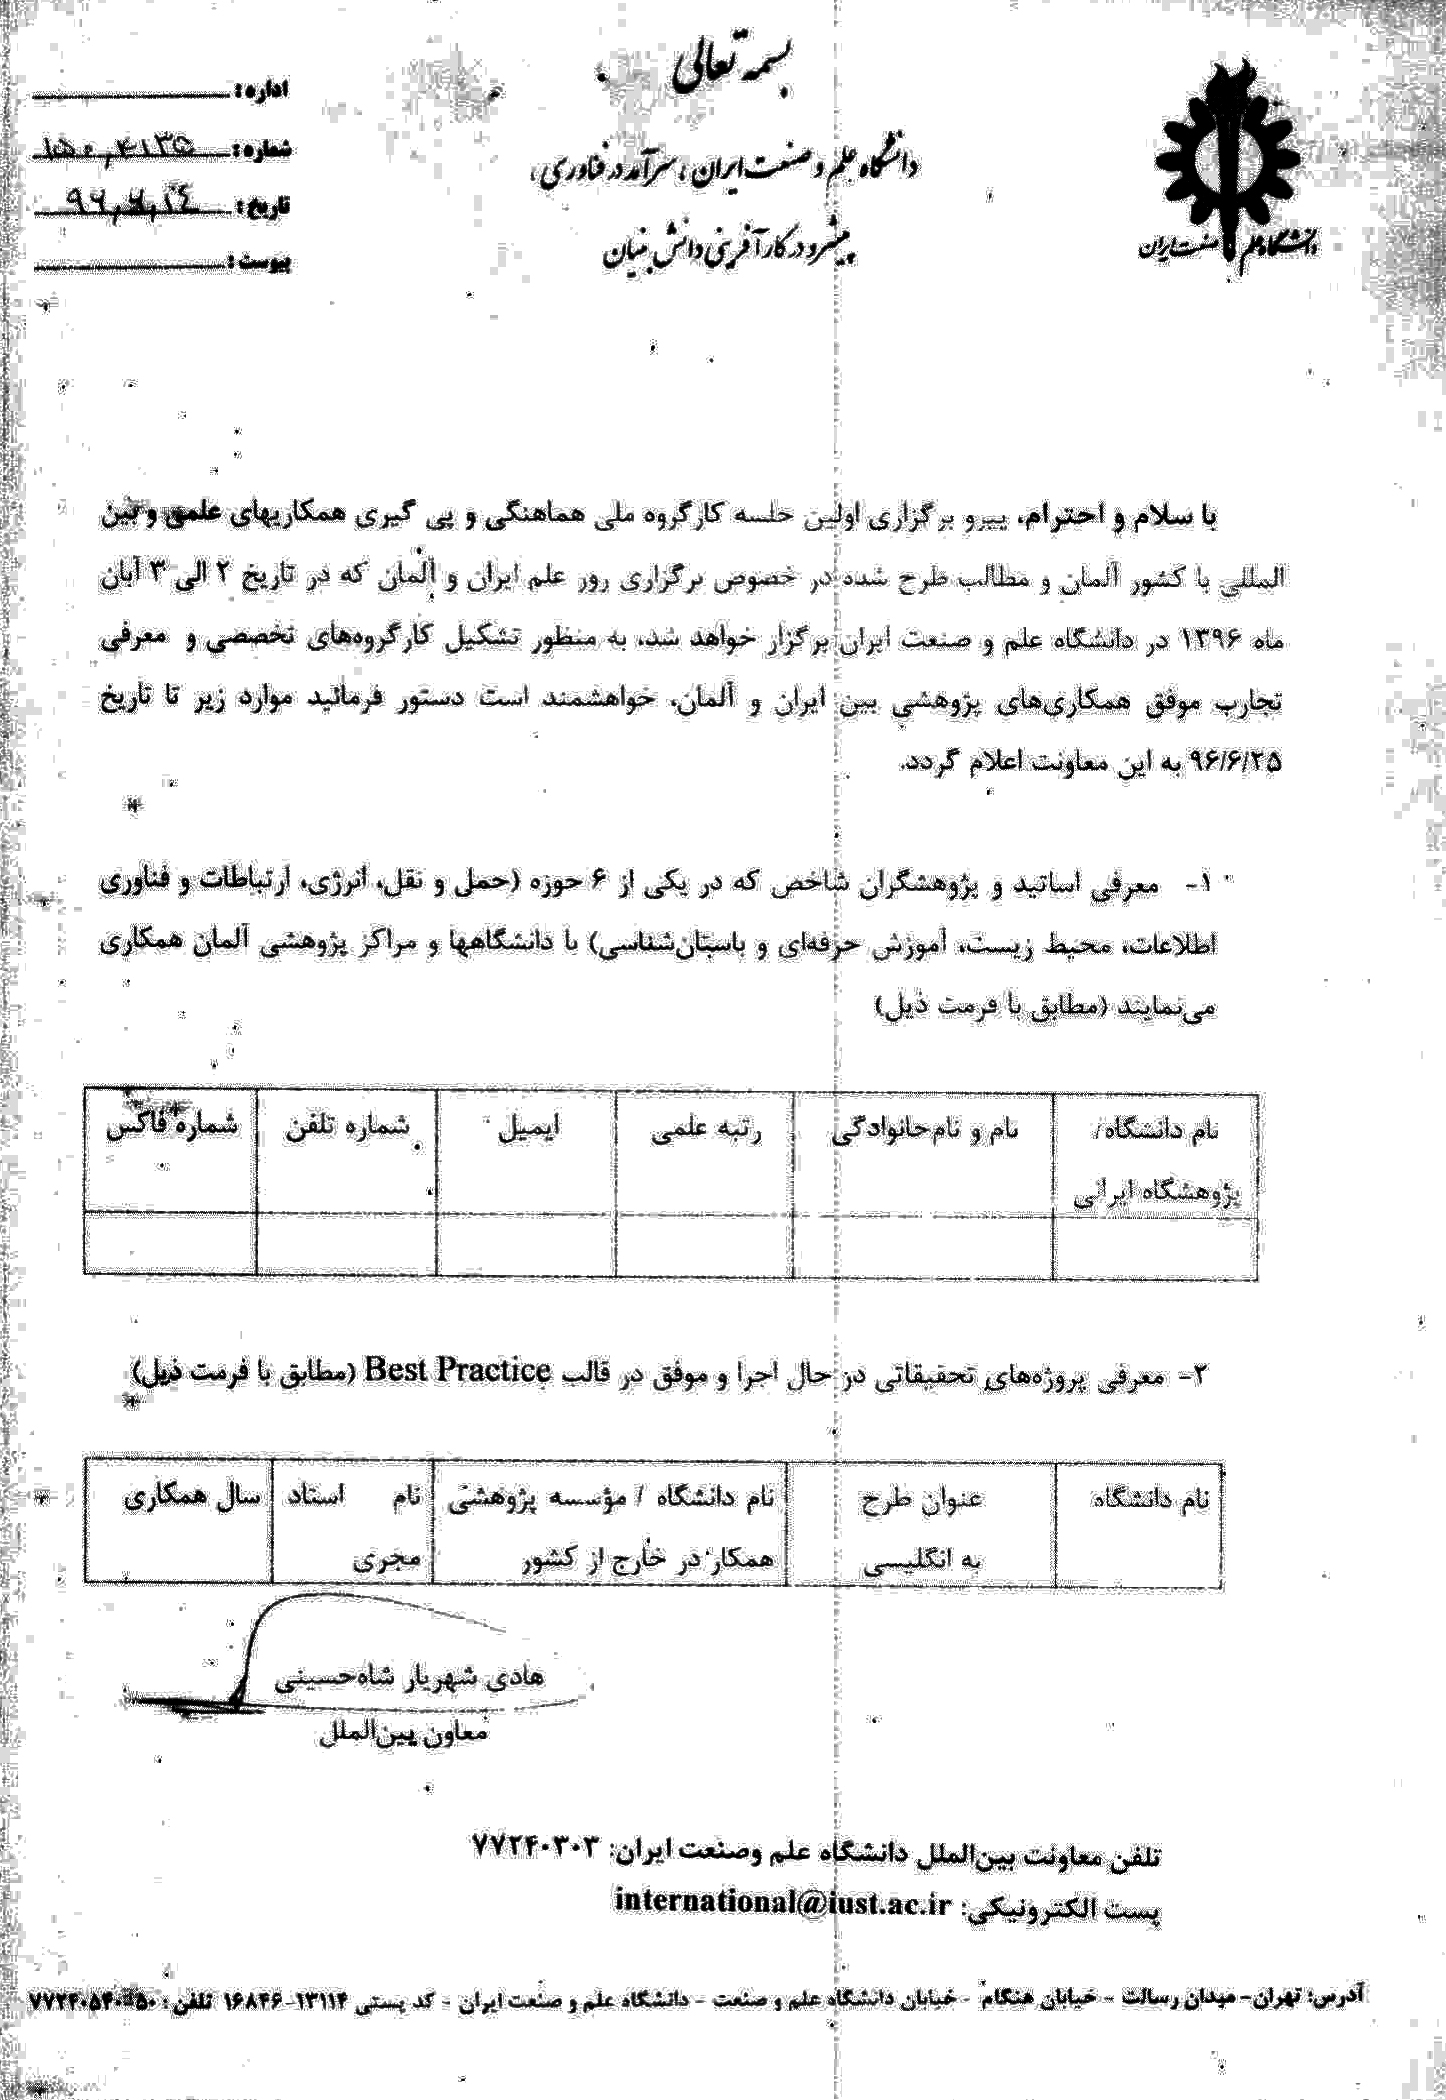 بسمه تعالی
دانشگاه علم و صنعت ایران، سرآمد در فناوری،
پیشرو در کارآفرینی دانش بنیان
دانشگاه علم و صنعت ایران
اداره:
شماره: ۱۵۰,۴۱۳۵
تاریخ: ۹۶,۶,۱۴
پیوست:
با سلام و احترام، پیرو برگزاری اولین جلسه کارگروه ملی هماهنگی و پی گیری همکاریهای علمی و بین
المللی با کشور آلمان و مطالب طرح شده در خصوص برگزاری روز علم ایران و آلمان که در تاریخ ۲ الی ۳ آبان
ماه ۱۳۹۶ در دانشگاه علم و صنعت ایران برگزار خواهد شد، به منظور تشکیل کارگروه‌های تخصصی و معرفی
تجارب موفق همکاری‌های پژوهشی بین ایران و آلمان، خواهشمند است دستور فرمائید موارد زیر تا تاریخ
۹۶/۶/۲۵ به این معاونت اعلام گردد.
۱- معرفی اساتید و پژوهشگران شاخص که در یکی از ۶ حوزه (حمل و نقل، انرژی، ارتباطات و فناوری
اطلاعات، محیط زیست، آموزش حرفه‌ای و باستان‌شناسی) با دانشگاهها و مراکز پژوهشی آلمان همکاری
می‌نمایند (مطابق با فرمت ذیل)
نام دانشگاه/ نام و نام‌خانوادگی رتبه علمی ایمیل شماره تلفن شماره فاکس
پژوهشگاه ایرانی
۲- معرفی پروژه‌های تحقیقاتی در حال اجرا و موفق در قالب Best Practice (مطابق با فرمت ذیل)
نام دانشگاه عنوان طرح نام دانشگاه / مؤسسه پژوهشی نام استاد سال همکاری
به انگلیسی همکار در خارج از کشور مجری
هادی شهریار شاه‌حسینی
معاون بین‌الملل
تلفن معاونت بین‌الملل دانشگاه علم وصنعت ایران: ۷۷۲۴۰۳۰۳
پست الکترونیکی: international@iust.ac.ir
آدرس: تهران- میدان رسالت - خیابان هنگام - خیابان دانشگاه علم و صنعت - دانشگاه علم و صنعت ایران - کد پستی ۱۳۱۱۴-۱۶۸۴۶ تلفن: ۵۰-۷۷۲۴۰۵۴۰